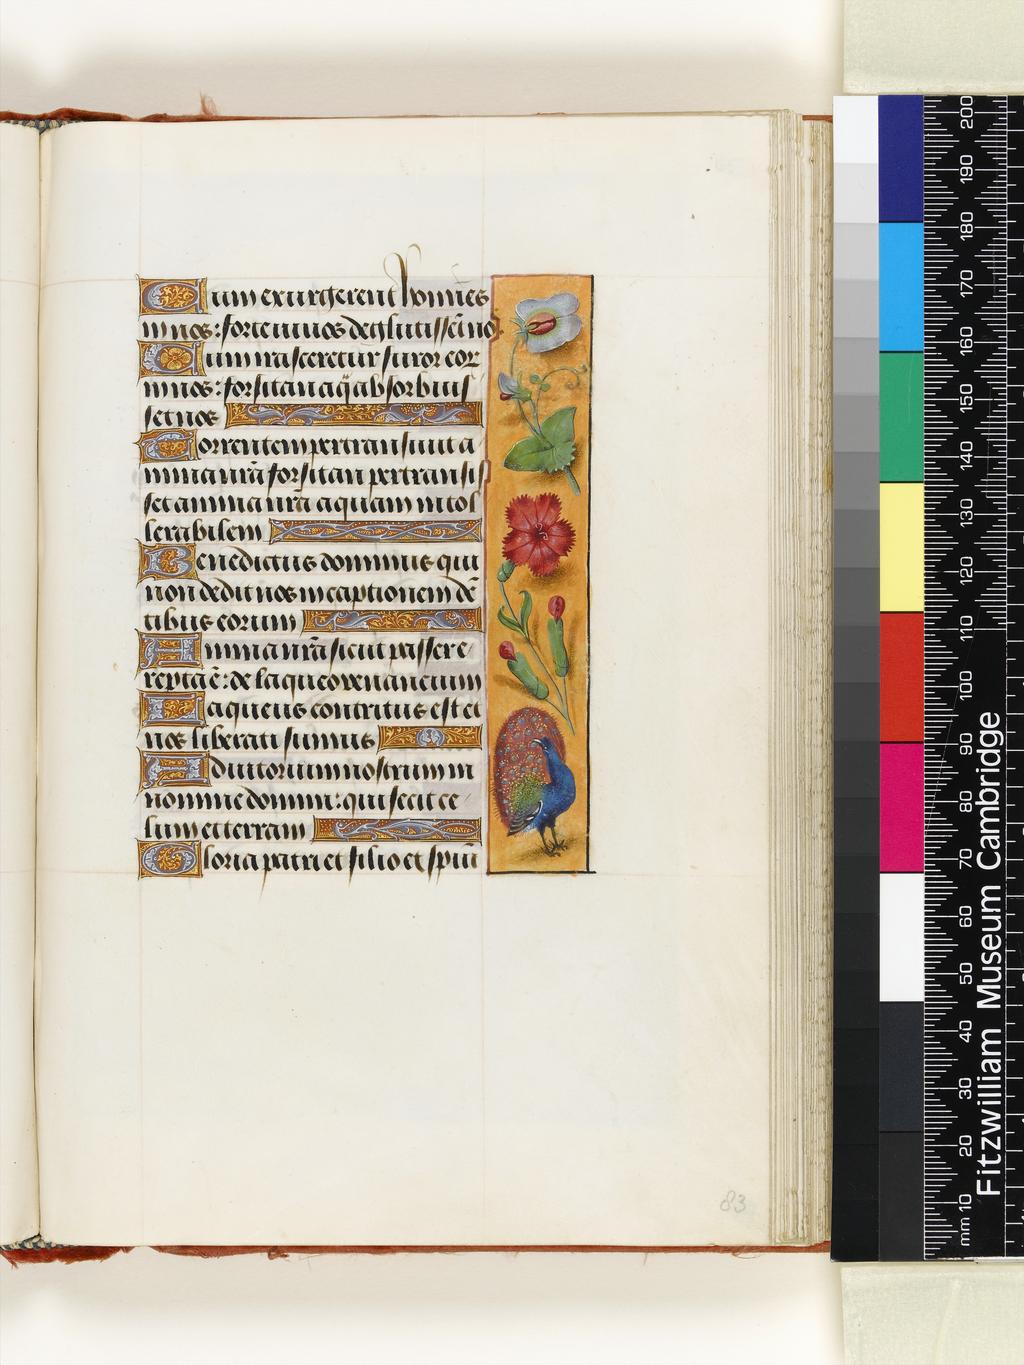 Cum exurgerent homĩes
in nos: forte vivos deglutissẽt nos.
Cum irasceretur furor eor
in nos: forsitan aq̃ absorbuis
set nos
Torrentem pertransivit a
nima nr̃a forsitan pertransis
set anima nr̃a aquam intol
lerabilem
Benedictus dominus qui
non dedit nos in captionem dẽ
tibus eorum
Anima nr̃a sicut passer e
repta ẽ: de laqueo venancium
Laqueus contritus est et
nos liberati sumus
Adiutorium nostrum in
nomine domini: qui fecit ce
lum et terram
Gloria patri et filio et spũi
83
Fitzwilliam Museum Cambridge
mm 10 20 30 40 50 60 70 80 90 100 110 120 130 140 150 160 170 180 190 200